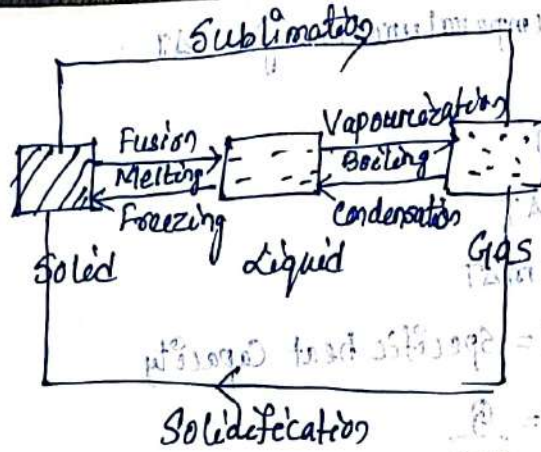 Sublimation
Fusion
Melting
Freezing
Vapourization
Boiling
Condensation
Solid
Liquid
Gas
= Specific heat capacity
Solidification